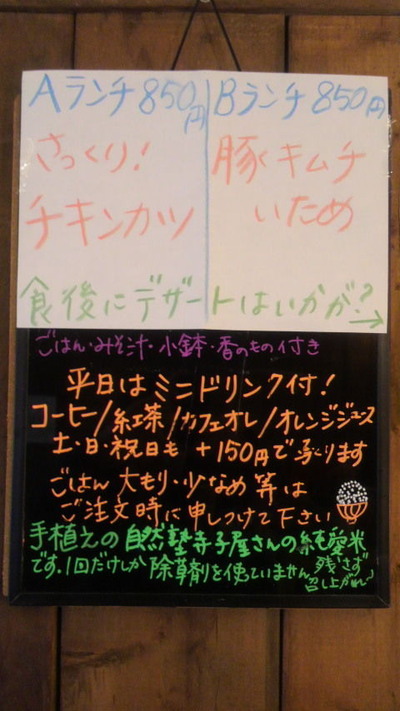 Aランチ 850円
Bランチ 850円
さっくり!
チキンカツ
豚キムチ
いため
食後にデザートはいかが?→
ごはん・みそ汁・小鉢・香のもの付き
平日はミニドリンク付!
コーヒー/紅茶/カフェオレ/オレンジジュース
土・日・祝日も +150円で承ります
ごはん 大もり・少なめ 等は
ご注文時に申しつけて下さい
手植えの自然塾寺子屋さんの純愛米
です。1回だけしか除草剤を使っていません 残さず
召し上がれ♪